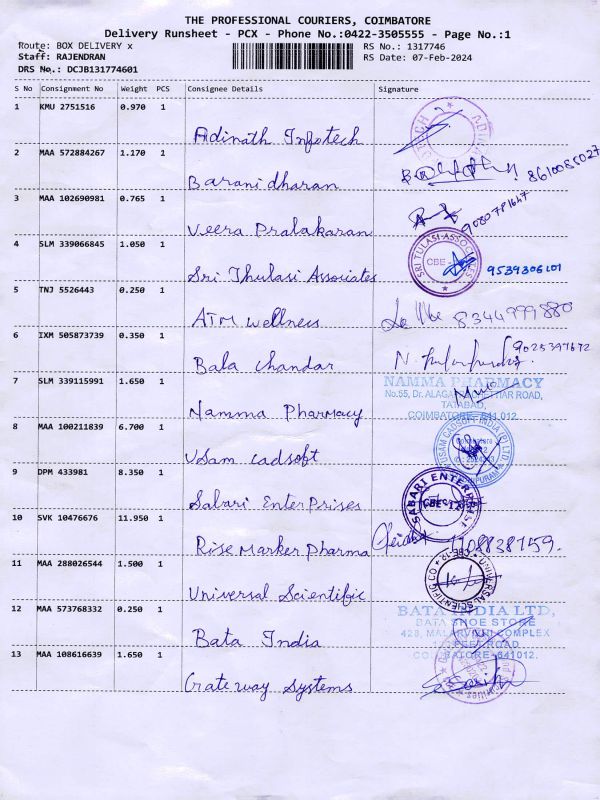 THE PROFESSIONAL COURIERS, COIMBATORE
Delivery Runsheet - PCX - Phone No.:0422-3505555 - Page No.:1
Route: BOX DELIVERY x
RS No.: 1317746
Staff: RAJENDRAN
RS Date: 07-Feb-2024
DRS No.: DCJB131774601
S No Consignment No Weight PCS Consignee Details Signature
1 KMU 2751516 0.970 1
Adinath Infotech
2 MAA 572884267 1.170 1
Baranidharan
3 MAA 102690981 0.765 1
Veera Pralakaran
4 SLM 339066845 1.050 1
SRI TULASI ASSOCIATES
CBE
Sri Thulasi Associates
9539306101
5 TNJ 5526443 0.250 1
ATM wellness
8344999880
6 IXM 505873739 0.350 1
9025397672
Bala chandar
7 SLM 339115991 1.650 1
NAMMA PHARMACY
TATABAD,
COIMBATORE - 641 012.
Namma Pharmacy
8 MAA 100211839 6.700 1
USAM CADSOFT INDIA (P) LTD
Usam cadsoft
9 DPM 433981 8.350 1
SABARI ENTERPRISES
CBE-12
Sabari EnterPrises
10 SVK 10476676 11.950 1
Rise Marker Pharma
11 MAA 288026544 1.500 1
UNIVERSAL SCIENTIFIC CO
CBE-12
Universal Scientific
12 MAA 573768332 0.250 1
BATA INDIA LTD,
BATA SHOE STORE
428, MALARVIZHI COMPLEX
COIMBATORE-641012.
Bata India
13 MAA 108616639 1.650 1
Gateway Systems